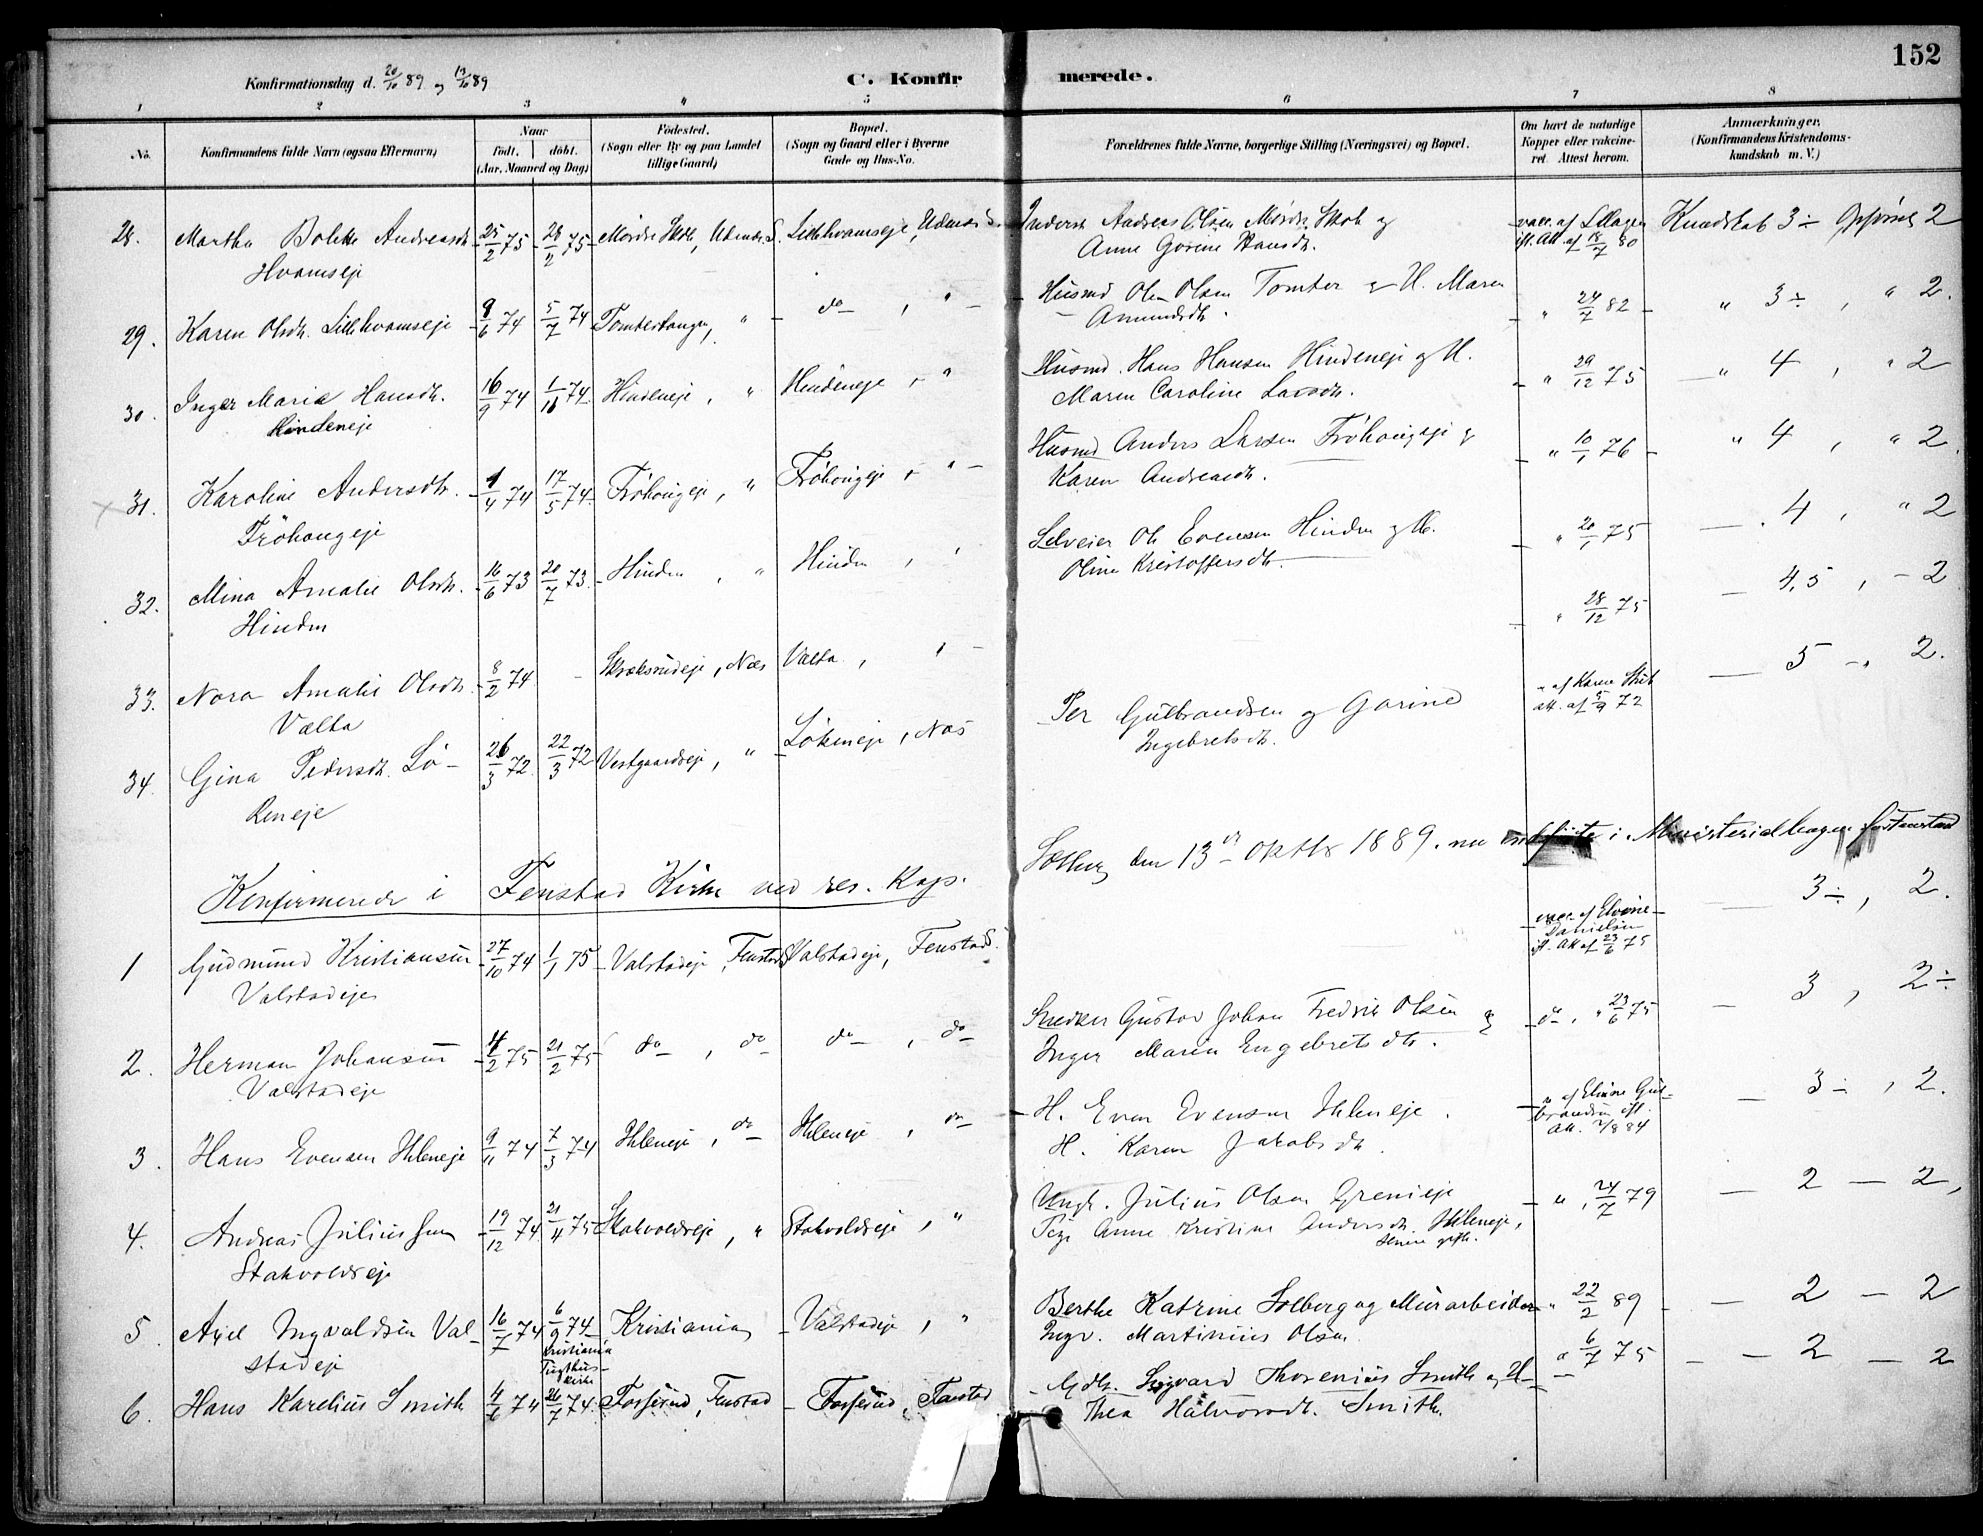 152
Konfirmationsdag d. 20/10 89 og 13/10 89
C. Konfirmerede.
1 2 3 4 5 6 7 8
No.
Konfirmandens fulde Navn (ogsaa Efternavn)
Naar
født. døbt.
(Aar, Maaned og Dag)
Fødested.
(Sogn eller By og paa Landet
tillige Gaard)
Bopæl.
(Sogn og Gaard eller i Byerne
Gade og Hus-No.
Forældrenes fulde Navne, borgerlige Stilling (Næringsvei) og Bopæl.
Om havt de naturlige
Kopper eller vakcine-
ret. Attest herom.
Anmærkninger.
(Konfirmandens Kristendoms-
kundskab m. V.)
28. Martha Andreasdt. 25/2 75 28/2 75 Mordre Skole, Udenæs S. Lillehvamseje, Udenæs S. Inderst Andreas Olsen Mordre Skole og
Hvamseje Anne Gorine Hansdt. Kundskab 3 ÷ Opførsel 2
29. Karen Olsdt. Lillehvamseje 8/6 74 5/7 74 Tomtertangen, " do, " Husmd Ole Olsen Tomter og H. Maren
Amundsdt. " 24/7 82 " 3 ÷, " 2.
30. Inger Marie Hansdt. 16/9 74 74 Hindeneje, " Hindeneje, " Husmd. Hans Hansen Hindeneje og H.
Hindeneje Maren Caroline Larsdt. " 29/12 75 " 4, " 2
31. Karoline Andersdt. 1/4 74 17/5 74 Fröhaugeje, " Fröhaugeje, " Husmd Anders Larsen Fröhaugeje og
Fröhaugeje Karen Andreasdt. " 10/1 76 " 4, " 2.
32. Mina Amalie Olsdt. 16/6 73 20/7 73. Hinden, " Hinden, " Selveier Ole Evensen Hinden og H.
Hinden Oline Kristoffersdt. " 20/1 75 4, " 2
33. Nora Amalie Olsdt. 8/2 74 Skrækerudeje, Næs Valta, " " 28/12 75 4,5, - 2
Valta
34. Gina Pedersdt. Lö- 26/3 72 22/3 72 Vestgaardseje, " Lökeneje, Næs Per Gulbrandsen og Gorine
keneje Ingebretsdt. " af Karen
att. af 5/9 72 5 - 2.
Konfirmerede i Fenstad Kirke ved res. Kap. Solberg den 13de Oktbr 1889. i Ministerialbogen for Fenstad
1 Gudmund Kristiansen 27/10 74 1/1 75 Valstadeje, Fenstad S. Valstadeje, Fenstad S. vacc. af Elvine
Valstadeje Danielsen
if. Att af 23/6 75 3 ÷, 2.
2. Herman Johansen 4/2 75 21/2 75 do, do do, do Snedker Gustav Johan Fredrik Olsen og
Valstadeje Inger Marie Engebretsdt. do, " 23/6 75 3, 2 ÷
3. Hans Evensen Ihleneje 9/11 74 7/3 74 Ihleneje, do Ihleneje, do H. Even Evensen Ihleneje.
H. Karen Jakobsdt. v. af Elvine Gul-
brandsen ifl.
Att. 84 3 -, 2.
4. Andreas Juliussen 19/12 74 75 Stakvoldseje, " Stakvoldseje, " Ungk. Julius Olsen Grenieje
Stakvoldseje Pige Anne Kristine Andersdt. Ihleneje,
" 24/7 79 2 - 2,
5. Axel Ingvaldsen Val- 16/7 74 6/9 74 Kristiania Valstadeje, " Berthe Katrine Solberg og Murarbeider
stadeje Kristiania
Tugthus-
kirke Ingv. Martinius Olsen " 22/2 89 2 - 2
6. Hans Karelius Smith 4/6 74 26/7 74. Fosserud, Fenstad Fosserud, Fenstad Gdbr. Sigvard Thorenius Smith og H.
Thea Halvorsdt. Smith. " 6/7 75 2 - 2